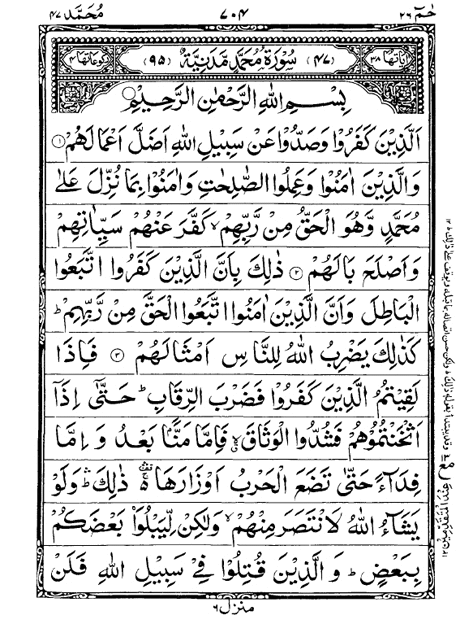 حٰمٓ ٢٦ ٧٠٤ مُحَمَّد ٤٧
اٰيَاتُهَا ٣٨ (٤٧) سُوْرَةُ مُحَمَّدٍ مَّدَنِيَّةٌ (٩٥) رُكُوْعَاتُهَا ٤
بِسْمِ اللهِ الرَّحْمٰنِ الرَّحِيْمِ
اَلَّذِيْنَ كَفَرُوْا وَصَدُّوْا عَنْ سَبِيْلِ اللهِ اَضَلَّ اَعْمَالَهُمْ ۝١
وَالَّذِيْنَ اٰمَنُوْا وَعَمِلُوا الصّٰلِحٰتِ وَاٰمَنُوْا بِمَا نُزِّلَ عَلٰى
مُحَمَّدٍ وَّهُوَ الْحَقُّ مِنْ رَّبِّهِمْ ۙ كَفَّرَ عَنْهُمْ سَيِّاٰتِهِمْ
وَاَصْلَحَ بَالَهُمْ ۝٢ ذٰلِكَ بِاَنَّ الَّذِيْنَ كَفَرُوا اتَّبَعُوا
الْبَاطِلَ وَاَنَّ الَّذِيْنَ اٰمَنُوا اتَّبَعُوا الْحَقَّ مِنْ رَّبِّهِمْ ؕ
كَذٰلِكَ يَضْرِبُ اللهُ لِلنَّاسِ اَمْثَالَهُمْ ۝٣ فَاِذَا
لَقِيْتُمُ الَّذِيْنَ كَفَرُوْا فَضَرْبَ الرِّقَابِ ؕ حَتّٰۤى اِذَاۤ
اَثْخَنْتُمُوْهُمْ فَشُدُّوا الْوَثَاقَ ۙ فَاِمَّا مَنًّۢا بَعْدُ وَ اِمَّا
فِدَآءً حَتّٰى تَضَعَ الْحَرْبُ اَوْزَارَهَا ۛ۬ ذٰلِكَ ۛؕ وَلَوْ
يَشَآءُ اللهُ لَانْتَصَرَ مِنْهُمْ ۙ وَلٰكِنْ لِّيَبْلُوَا۟ بَعْضَكُمْ
بِبَعْضٍ ؕ وَ الَّذِيْنَ قُتِلُوْا فِيْ سَبِيْلِ اللهِ فَلَنْ
منزل ٦